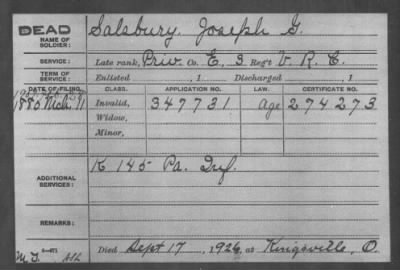 DEAD
NAME OF SOLDIER:
Salsbury, Joseph G.
SERVICE:
Late rank, Priv. Co. E, 3 Reg't V. R. C.
TERM OF SERVICE:
Enlisted , 1 Discharged , 1
DATE OF FILING. CLASS. APPLICATION NO. LAW. CERTIFICATE NO.
1880 Mch. 91 Invalid, 347731 Age 274273
Widow,
Minor,
ADDITIONAL SERVICES:
K 145 Pa. Inf.
REMARKS:
Died Sept 17, 1926, at Kingsville, O.